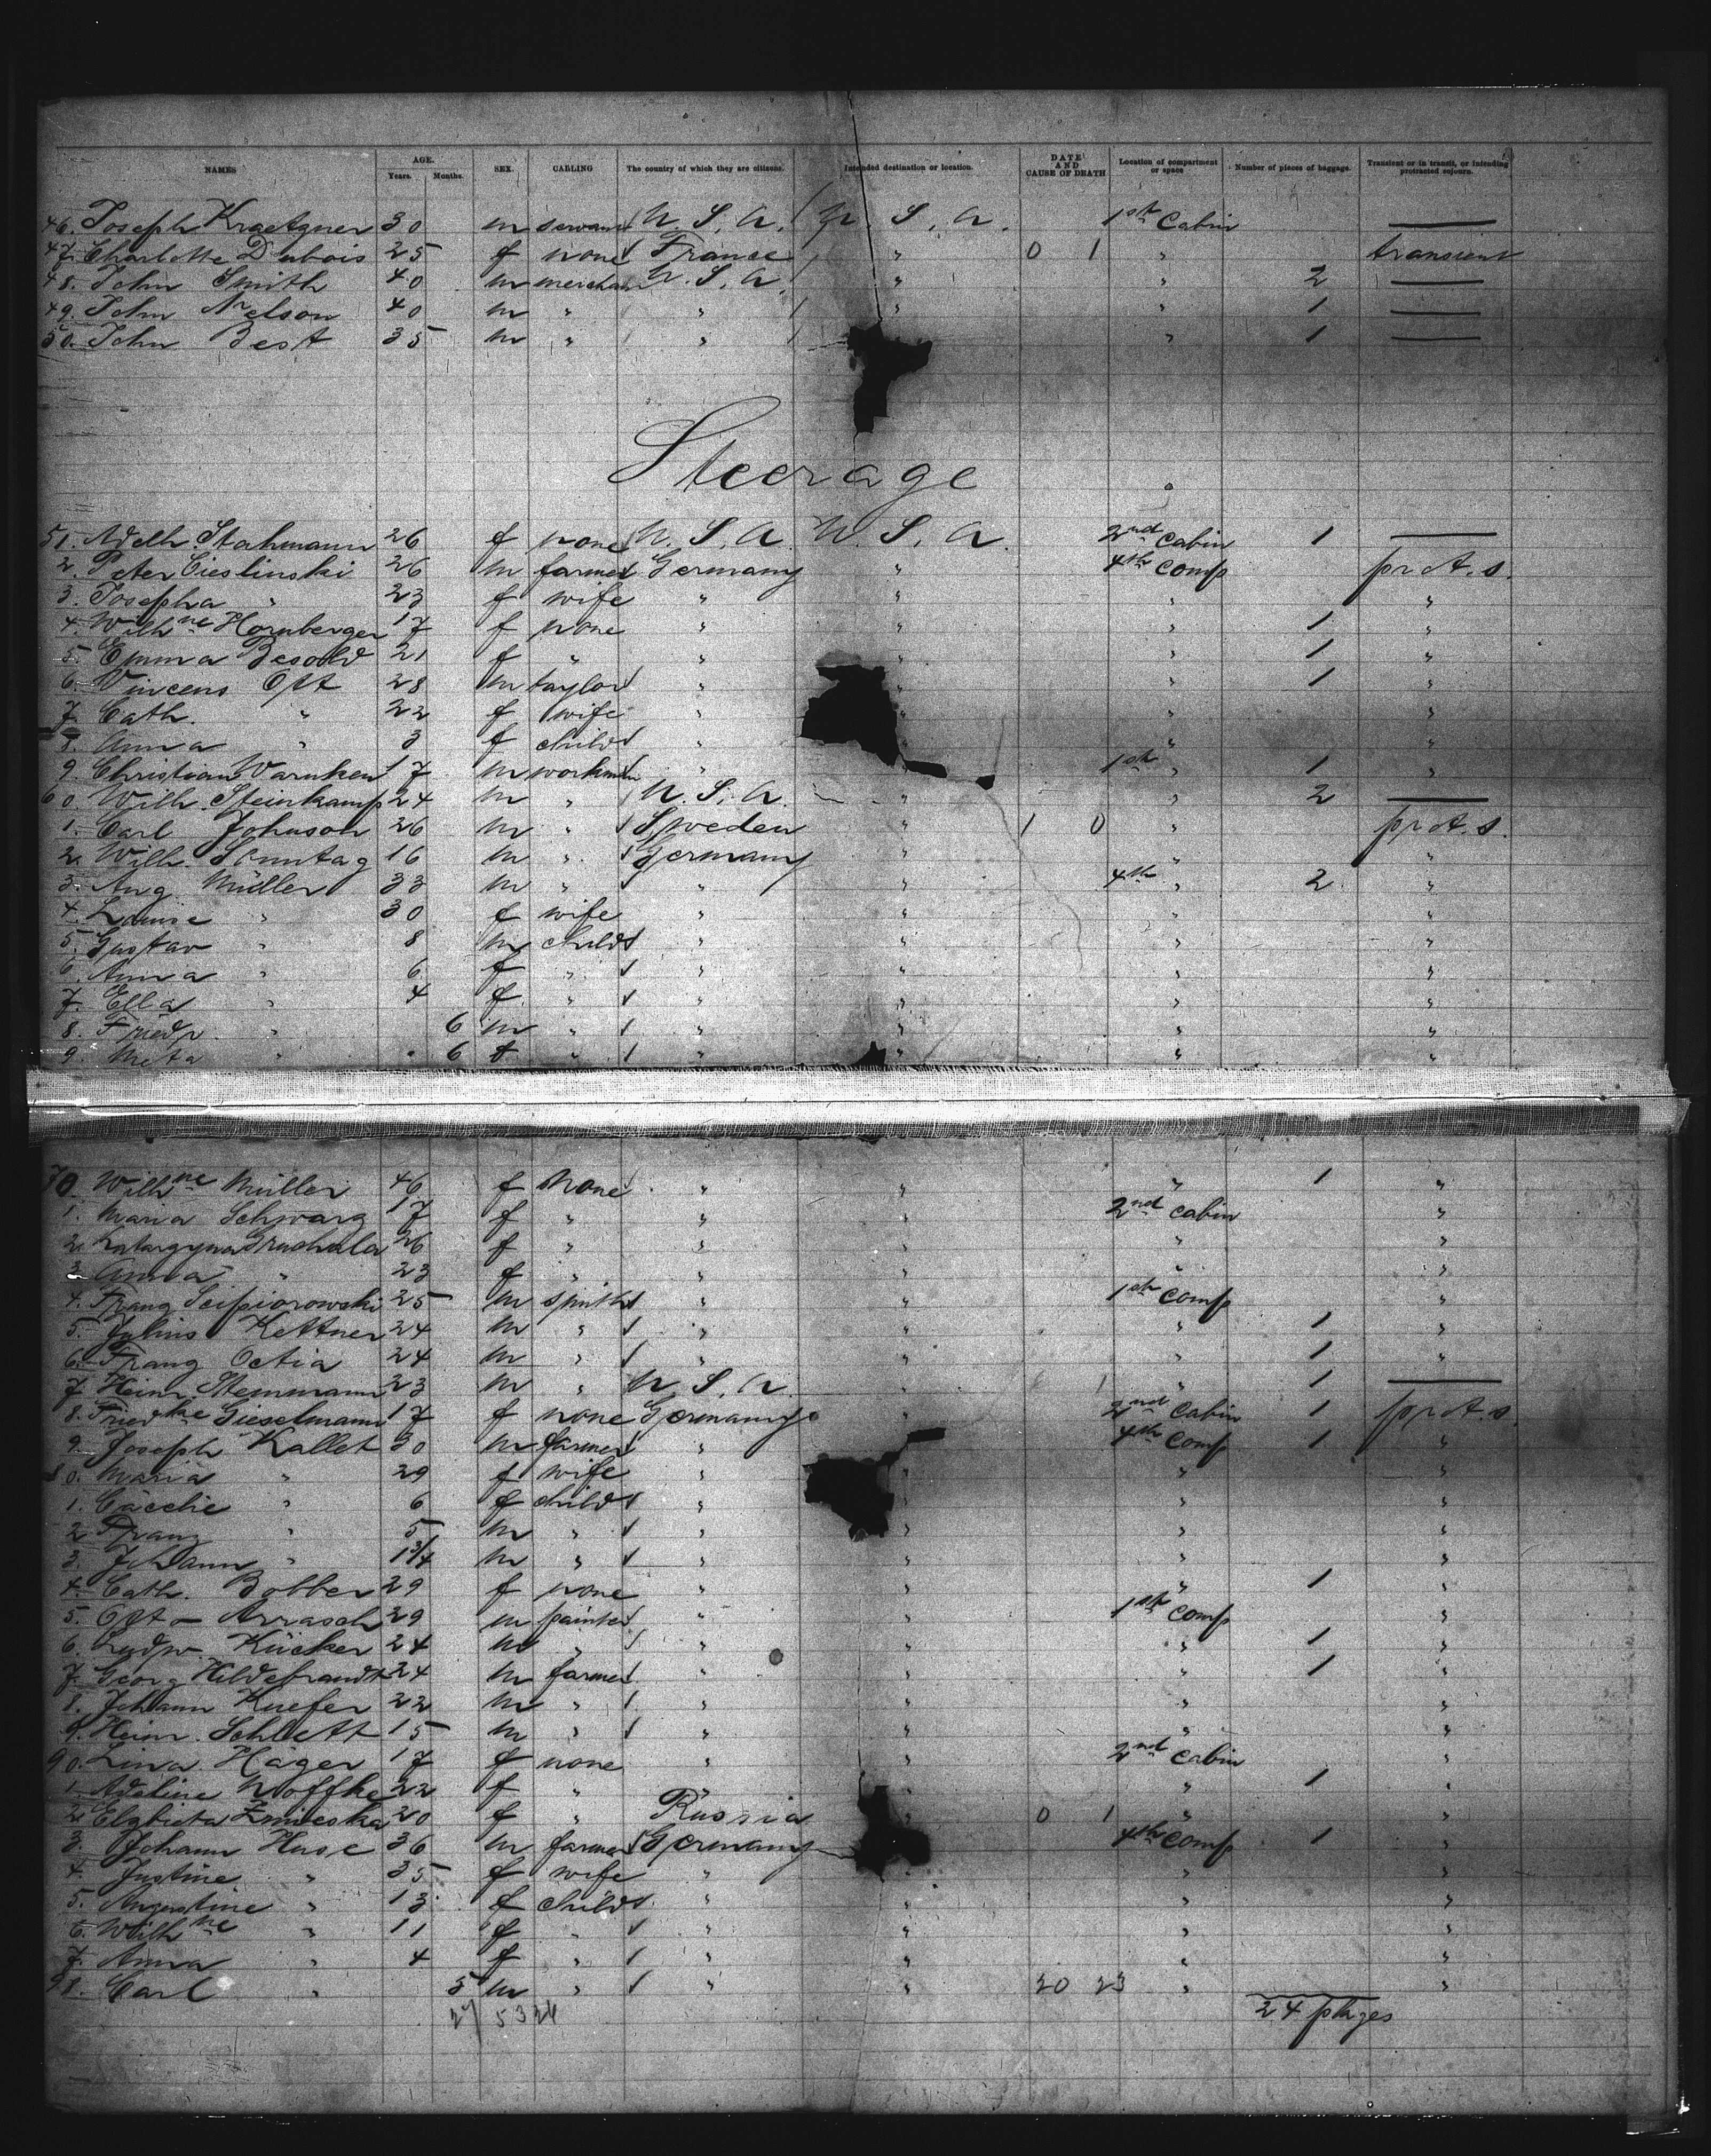 NAMES AGE. Years. Months. SEX. CALLING The country of which they are citizens. Intended destination or location. DATE AND CAUSE OF DEATH Location of compartment or space Number of pieces of baggage. Transient or in transit, or intending protracted sojourn.
46. Joseph Kraetzner 30 m servant U. S. A. U. S. A. 1st Cabin —
47. Charlotte Dubois 25 f none France " 0 1 " transient
48. John Smith 40 m merchant U. S. A. " " 2 —
49. John Nelson 40 m " " " " 1 —
50. John Best 35 m " " " 1 —
Steerage
51. Adelh. Stahmann 26 f none U. S. A. U. S. A. 2nd Cabin 1 —
2. Peter Cieslinski 26 m farmer Germany " 4th Comp pr A. s.
3. Josepha " 23 f wife " " " "
4. Wilhne Hornberger 17 f none " " " 1 "
5. Emma Besold 21 f " " " " 1 "
6. Vincens Ott 28 m taylor " " " 1 "
7. Cath. " 22 f wife " " " "
8. Anna " 3 f child " " " "
9. Christian Warnken 17 m workman " " 1st " 1 "
60. Wilh. Steinkamp 24 m " U. S. A. " " 2 —
1. Carl Johnson 26 m " Sweden " 1 0 " pr A. s.
2. Wilh. Sonntag 16 m " Germany " " "
3. Aug. Müller 33 m " " " 4th " 2 "
4. Louise " 30 f wife " " " "
5. Gustav " 8 m child " " " "
6. Anna " 6 f " " " " "
7. Ella " 4 f " " " " "
8. Friedr. " 6 m " " " " "
9 Meta " 6 f " " " " "
70. Wilhne Müller 46 f none " " " 1 "
1. Maria Schwarz 17 f " " " 2nd cabin "
2. Katarzyna Gruchala 26 f " " " " "
3. Anna " 23 f " " " " "
4. Franz Scipiorowski 25 m smith " " 1st comp "
5. Julius Kettner 24 m " " " " 1 "
6. Franz Octia 24 m " " " " 1 "
7. Heinr. Stemmann 23 m " U. S. A. " 1 " 1 —
8. Friedke Gieselmann 17 f none Germany " 2nd Cabin 1 pr A. s.
9. Joseph Kallet 30 m farmer " 4th Comp 1 "
80. Maria " 29 f wife " " " "
1. Cäcelie " 6 f child " " " "
2 Franz " 5 m " " " " "
3. Johann " 1 3/4 m " " " " "
4. Cath. Bobber 29 f none " " " 1 "
5. Otto Arrasch 29 m painter " " 1st comp "
6. Ludw. Kücker 24 m " " " " 1 "
7. Georg Hildebrandt 24 m farmer " " " 1 "
8. Johann Kuefer 22 m " " " " "
9. Heinr. Schlett 15 m " " " " "
90. Lina Häger 17 f none " " 2nd cabin "
1. Adeline Noffke 22 f " " " " 1 "
2. Elzbieta Zmieska 20 f " Russia " 0 1 " "
3. Johann Huse 36 m farmer Germany 4th Comp 1 "
4. Justine " 35 f wife " " " "
5. Augustine " 13 f child " " " "
6. Wilhne " 11 f " " " " "
7. Anna " 4 f " " " " "
98. Carl " 5 m " " " 20 23 " "
27 53 24 24 pkges